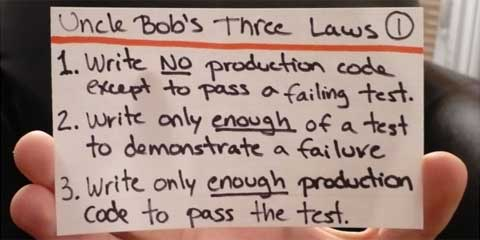 Uncle Bob's Three Laws ①
1. Write NO production code
except to pass a failing test.
2. Write only enough of a test
to demonstrate a failure
3. Write only enough production
code to pass the test.